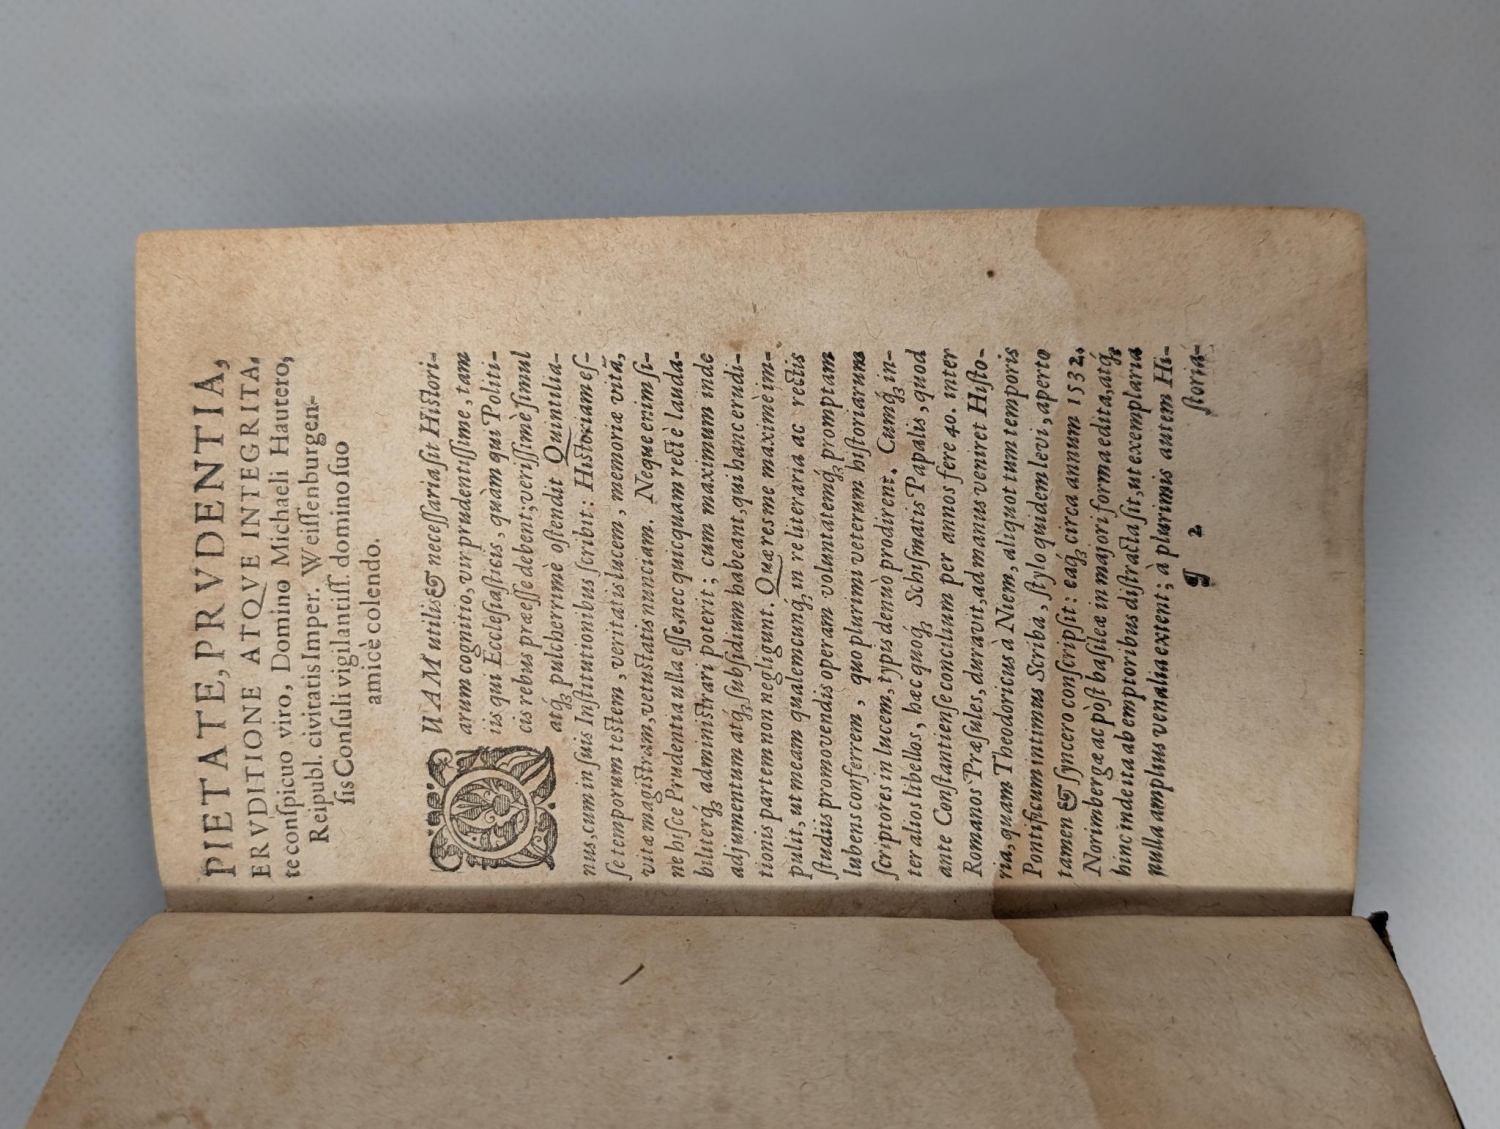 PIETATE, PRVDENTIA,
ERVDITIONE ATQVE INTEGRITA,
te conſpicuo viro, Domino Michaeli Hautero,
Reipubl. civitatis Imper. Weiſſenburgen-
ſis Conſuli vigilantiſſ. domino ſuo
amicè colendo.
QUAM utilis & neceſſaria ſit Hiſtori-
arum cognitio, vir prudentiſſime, tam
iis qui Eccleſiaſticis, quàm qui Politi-
cis rebus præeſſe debent; veriſſimè ſimul
atq́; pulcherrimè oſtendit Quintilia-
nus, cum in ſuis Inſtitutionibus ſcribit: Hiſtoriam eſ-
ſe temporum teſtem, veritatis lucem, memoriæ vitã,
vitæ magiſtram, vetuſtatis nunciam. Neque enim ſi-
ne hiſce Prudentia ulla eſſe, nec quicquam rectè lauda-
biliterq́; adminiſtrari poterit; cum maximum inde
adjumentum atq́; ſubſidium habeant, qui hanc erudi-
tionis partem non negligunt. Quæ res me maximè im-
pulit, ut meam qualemcunq́; in re literaria ac rectis
ſtudiis promovendis operam voluntatemq́; promptam
lubens conferrem, quo plurimi veterum hiſtoriarum
ſcriptores in lucem, typis denuò prodirent. Cumq́; in-
ter alios libellos, hæc quoq́; Schiſmatis Papalis, quod
ante Conſtantienſe concilium per annos fere 40. inter
Romanos Præſules, duravit, ad manus veniret Hiſto-
ria, quam Theodoricus à Niem, aliquot tum temporis
Pontificum intimus Scriba, ſtylo quidem levi, aperto
tamen & ſyncero conſcripſit: eaq́; circa annum 1532.
Norimbergæ ac pòſt baſileæ in majori forma edita, atq́;
hinc inde ita ab emptoribus diſtracta ſit, ut exemplaria
nulla amplius venalia extent; à plurimis autem Hi-
¶ 2 ſtoria-